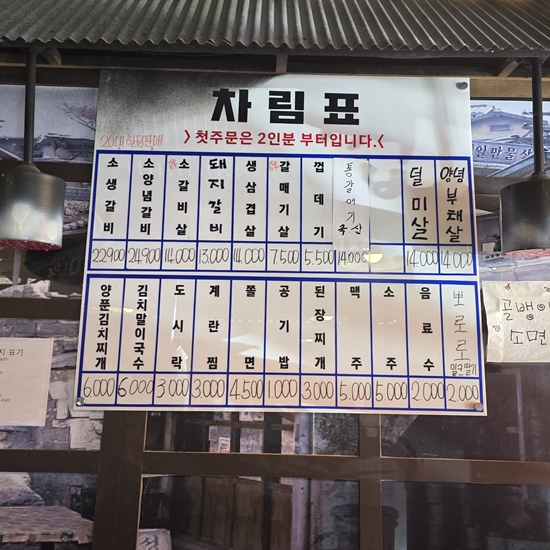 차림표
20대 한정판매
>첫주문은 2인분 부터입니다.<
소생갈비 22900
소양념갈비 24900
소갈비살 14,000
돼지갈비 13,000
생삼겹살 14,000
갈매기살 7,500
껍데기 5,500
국산 14000
덜미살 14,000
양념부채살 14,000
양푼김치찌개 6,000
김치말이국수 6000
도시락 3000
계란찜 3000
쫄면 4,500
공기밥 1,000
된장찌개 3000
맥주 5,000
소주 5,000
음료수 2,000
뽀로로 밀크 딸기 2,000
골뱅이
소면
일만물상
지 표기